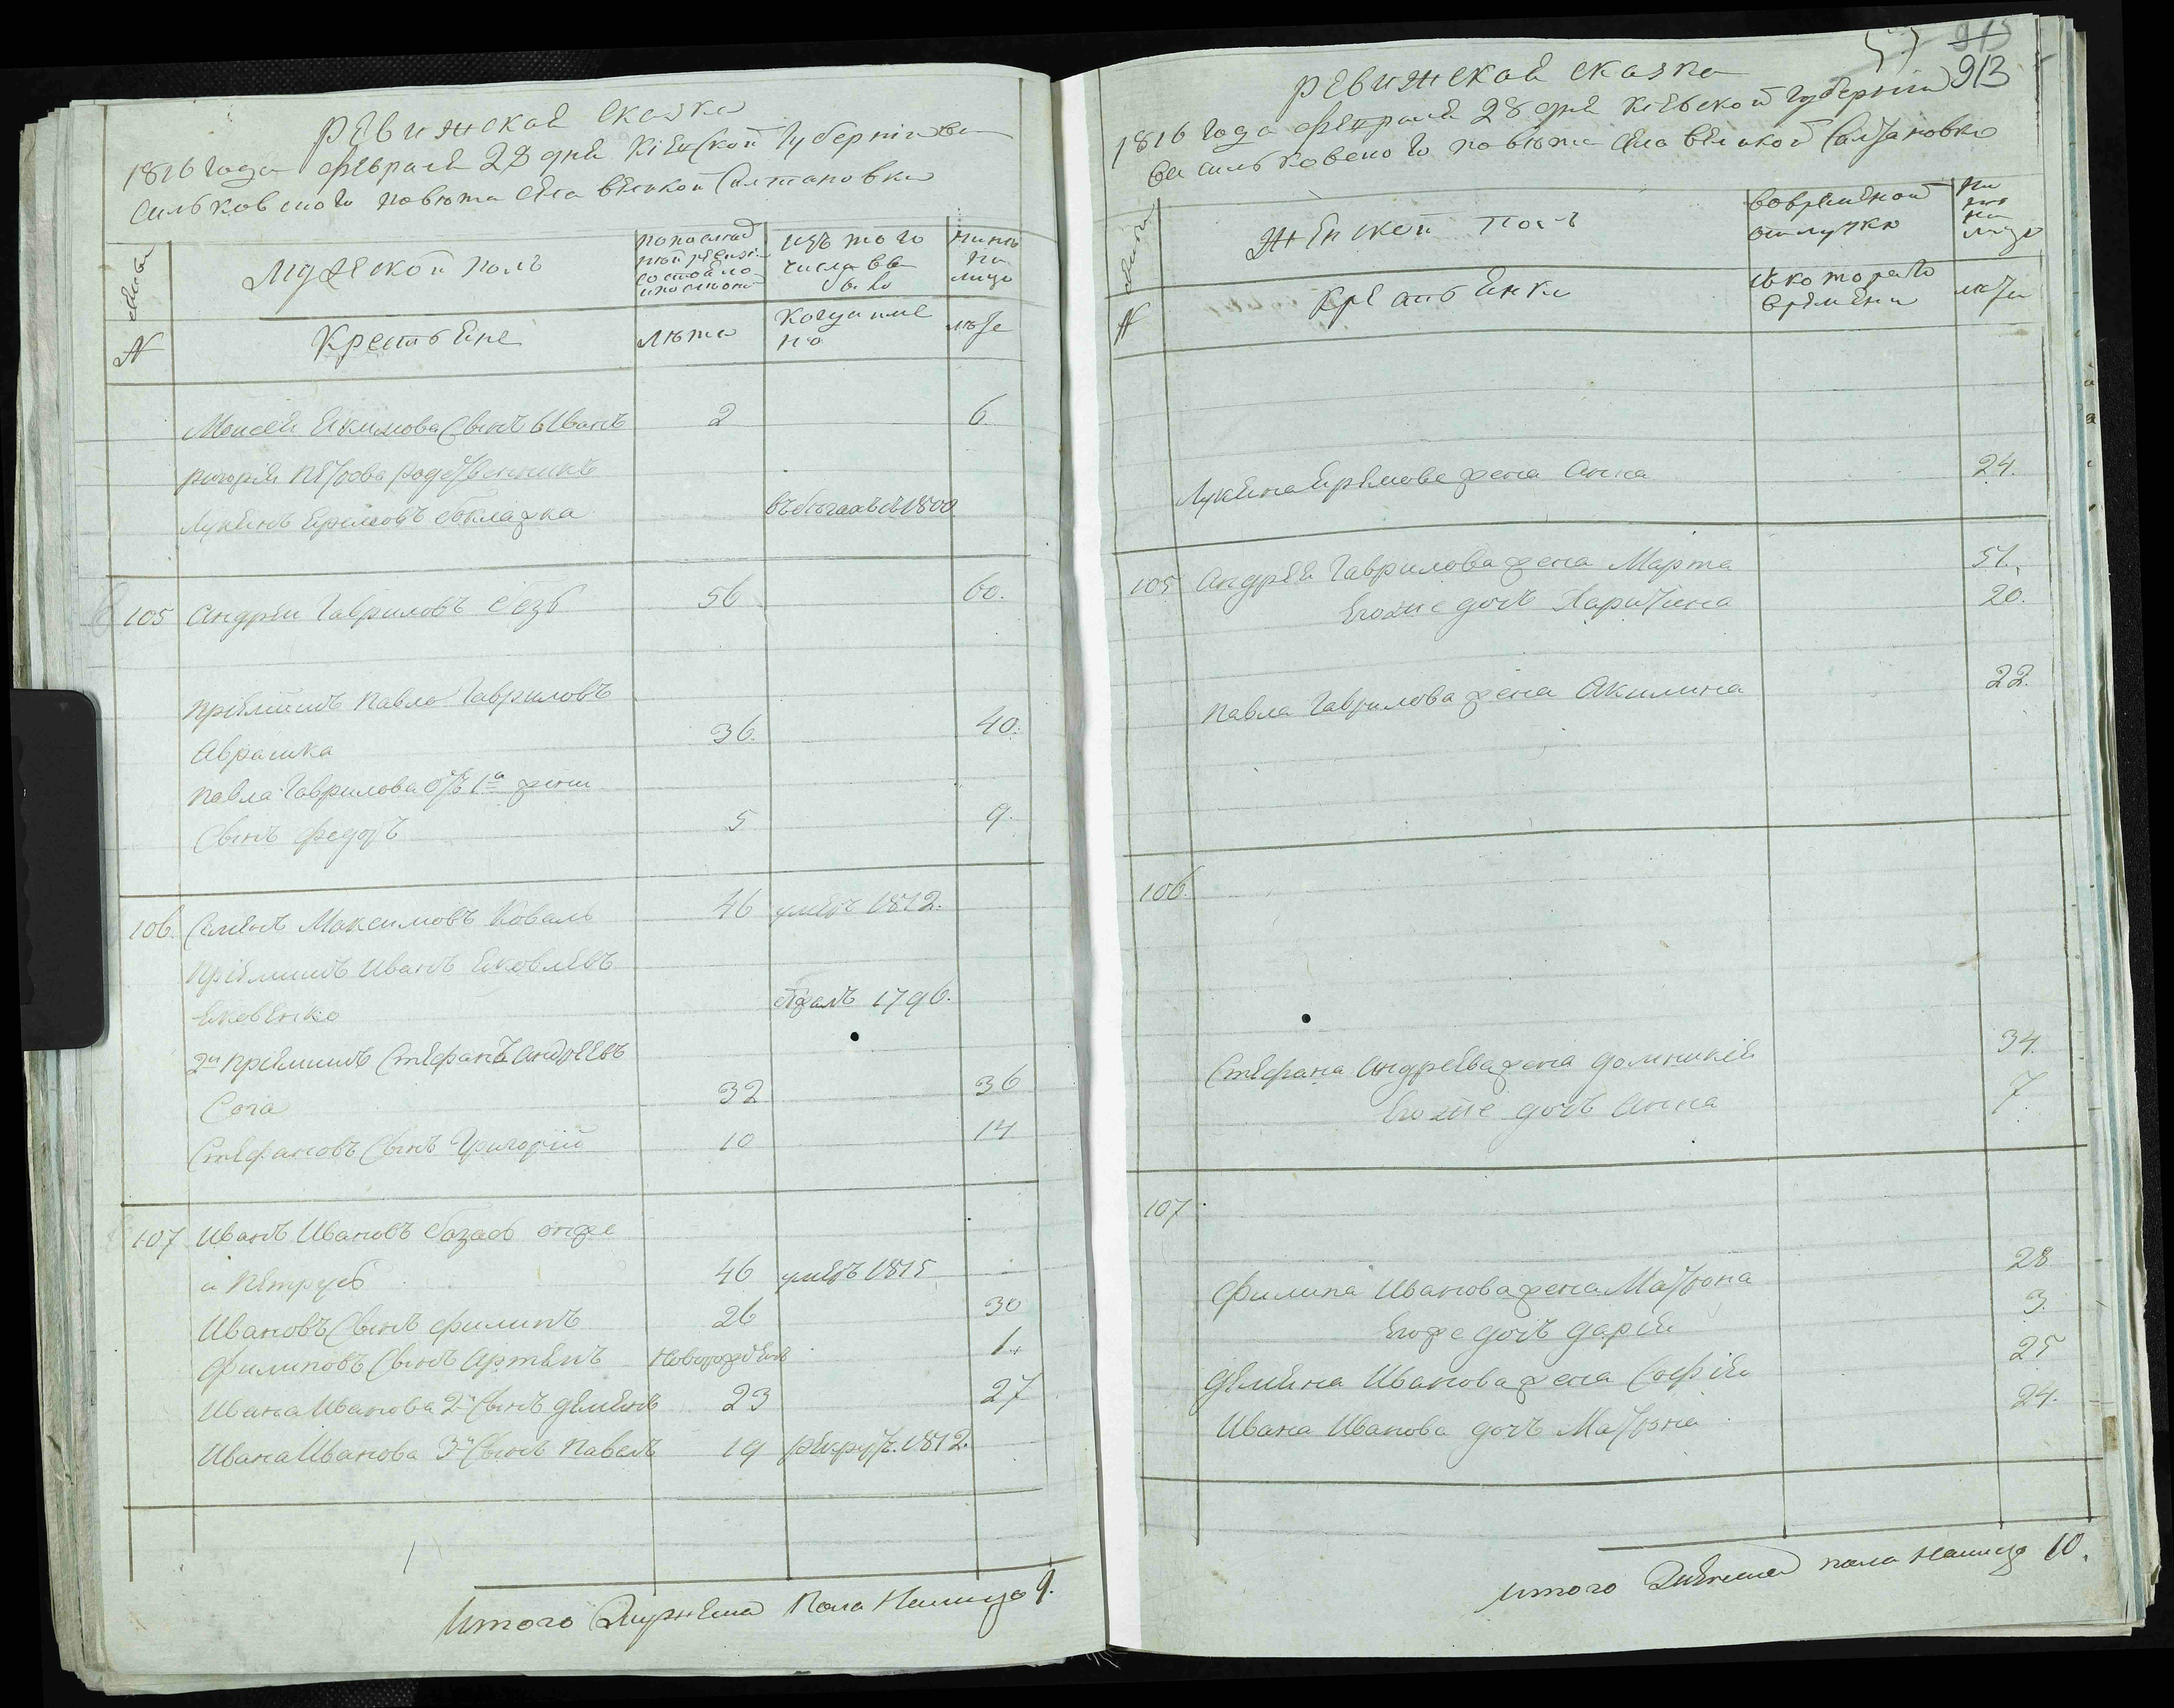 Ревижская сказка
1816 года февраля 28 дня Кіевской Губерніи Ва
сильковского повюта села великой Салтановки
семьи
Мужеской полъ
по последней ревизіи состояло
изъ того числа выбыло
нынѣ на лицо
№
Крестьяне
лѣта
когда имено
лѣта
Моисея Якимова Сынъ Иванъ 2 6.
Григорія Петрова родственникъ
Лукьянъ Еремовъ въ бегахъ с 1800
105 Андрѣй Гавриловъ 56 60.
пріемышъ Павло Гавриловъ
Аврамка 36. 40.
Павла Гаврилова отъ 1й жены
Сынъ Федоръ 5 9.
106. Семенъ Максимовъ Коваль 46 умеръ 1812.
пріемышъ Иванъ Яковлевъ
Яковенко 1796.
2й пріемышъ Стефанъ Андреевъ
Сога 32 36
Стефановъ Сынъ Григорій 10 14
107 Иванъ Ивановъ онже
и Петрусь 46 умеръ 1815
Ивановъ Сынъ Филипъ 26 30
Филиповъ Сынъ Артемъ новорожденъ 1.
Ивана Иванова 2й Сынъ Деменъ 23 27
Ивана Иванова 3й Сынъ Павелъ 19 рекрутъ 1812.
Итого Мужеска Пола Налицо 9.
57 913
913
Ревижская сказка
1816 года февраля 28 дня Кіевской Губерніи
Васильковского повюта села великой Салтановки
семьи
Женской полъ
во временной отлучке
нынѣ на лицо
№
Крестьянки
съ которого времени
лѣта
Лукьяна Еремова жена Анна 24.
105 Андрея Гаврилова жена Марта 51.
Егоже дочь Харитина 20.
Павла Гаврилова жена Акилина 22.
106.
Стефана Андреева жена Домникія 34.
Егоже дочь Анна 7.
107
Филипа Иванова жена Матрона 28
Егоже дочь Дарія 3.
Демяна Иванова жена Софія 25
Ивана Иванова дочь Матрона 24.
Итого Женска пола налицо 10.